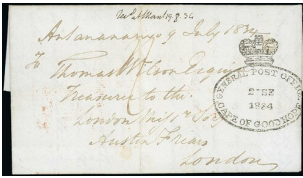 Antananarivo 9 July 1834
To
Thomas Wilson Esquire
Treasurer to the
London Miss Socy
Austin Friars
London
GENERAL POST OFFICE
2 SE
1834
CAPE OF GOOD HOPE